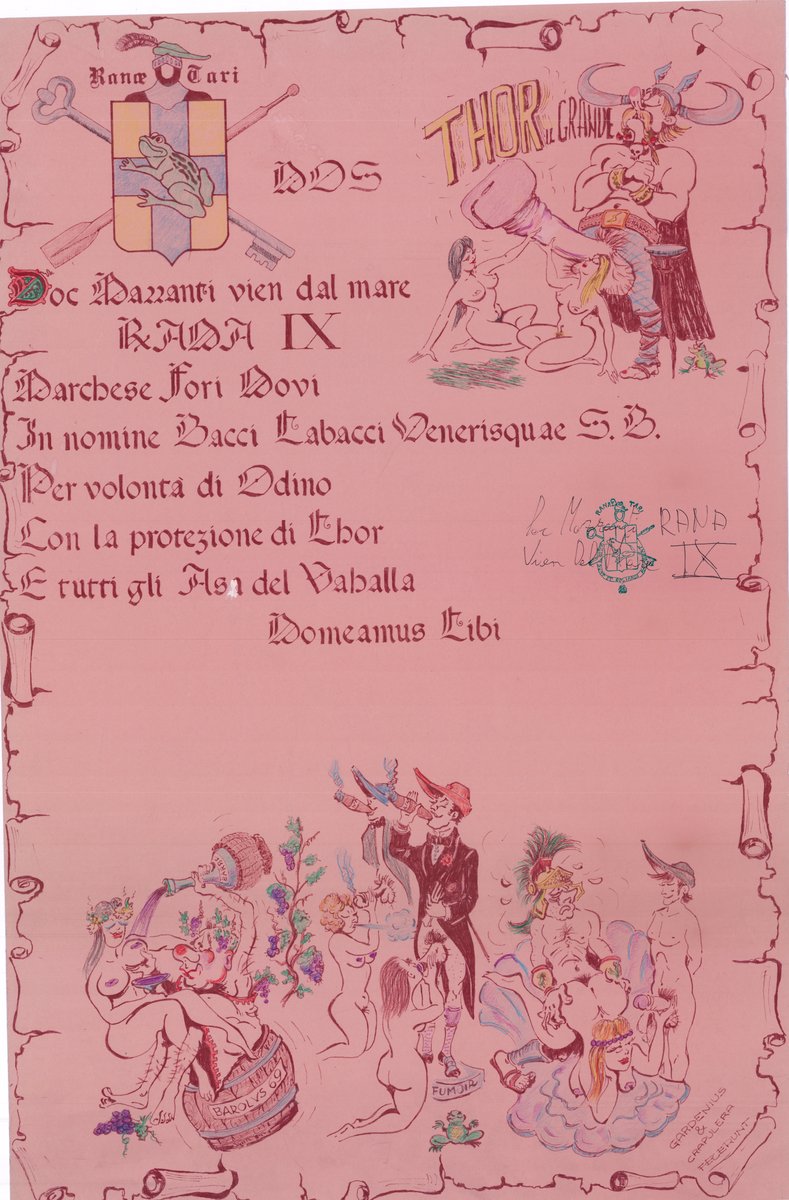 Ranae Tari
NOS
THOR IL GRANDE
Doc Mazzanti vien dal mare
RANA IX
Marchese Fori Novi
In nomine Bacci Tabacci Venerisquae S. B.
Per volontà di Odino
Con la protezione di Thor
E tutti gli Asa del Vahalla
Nomeamus Tibi
RANA
Vien Dal
IX
BAROLVS 69
FUMIR
GARDENIUS
&
CRAPULERA
FECERUNT